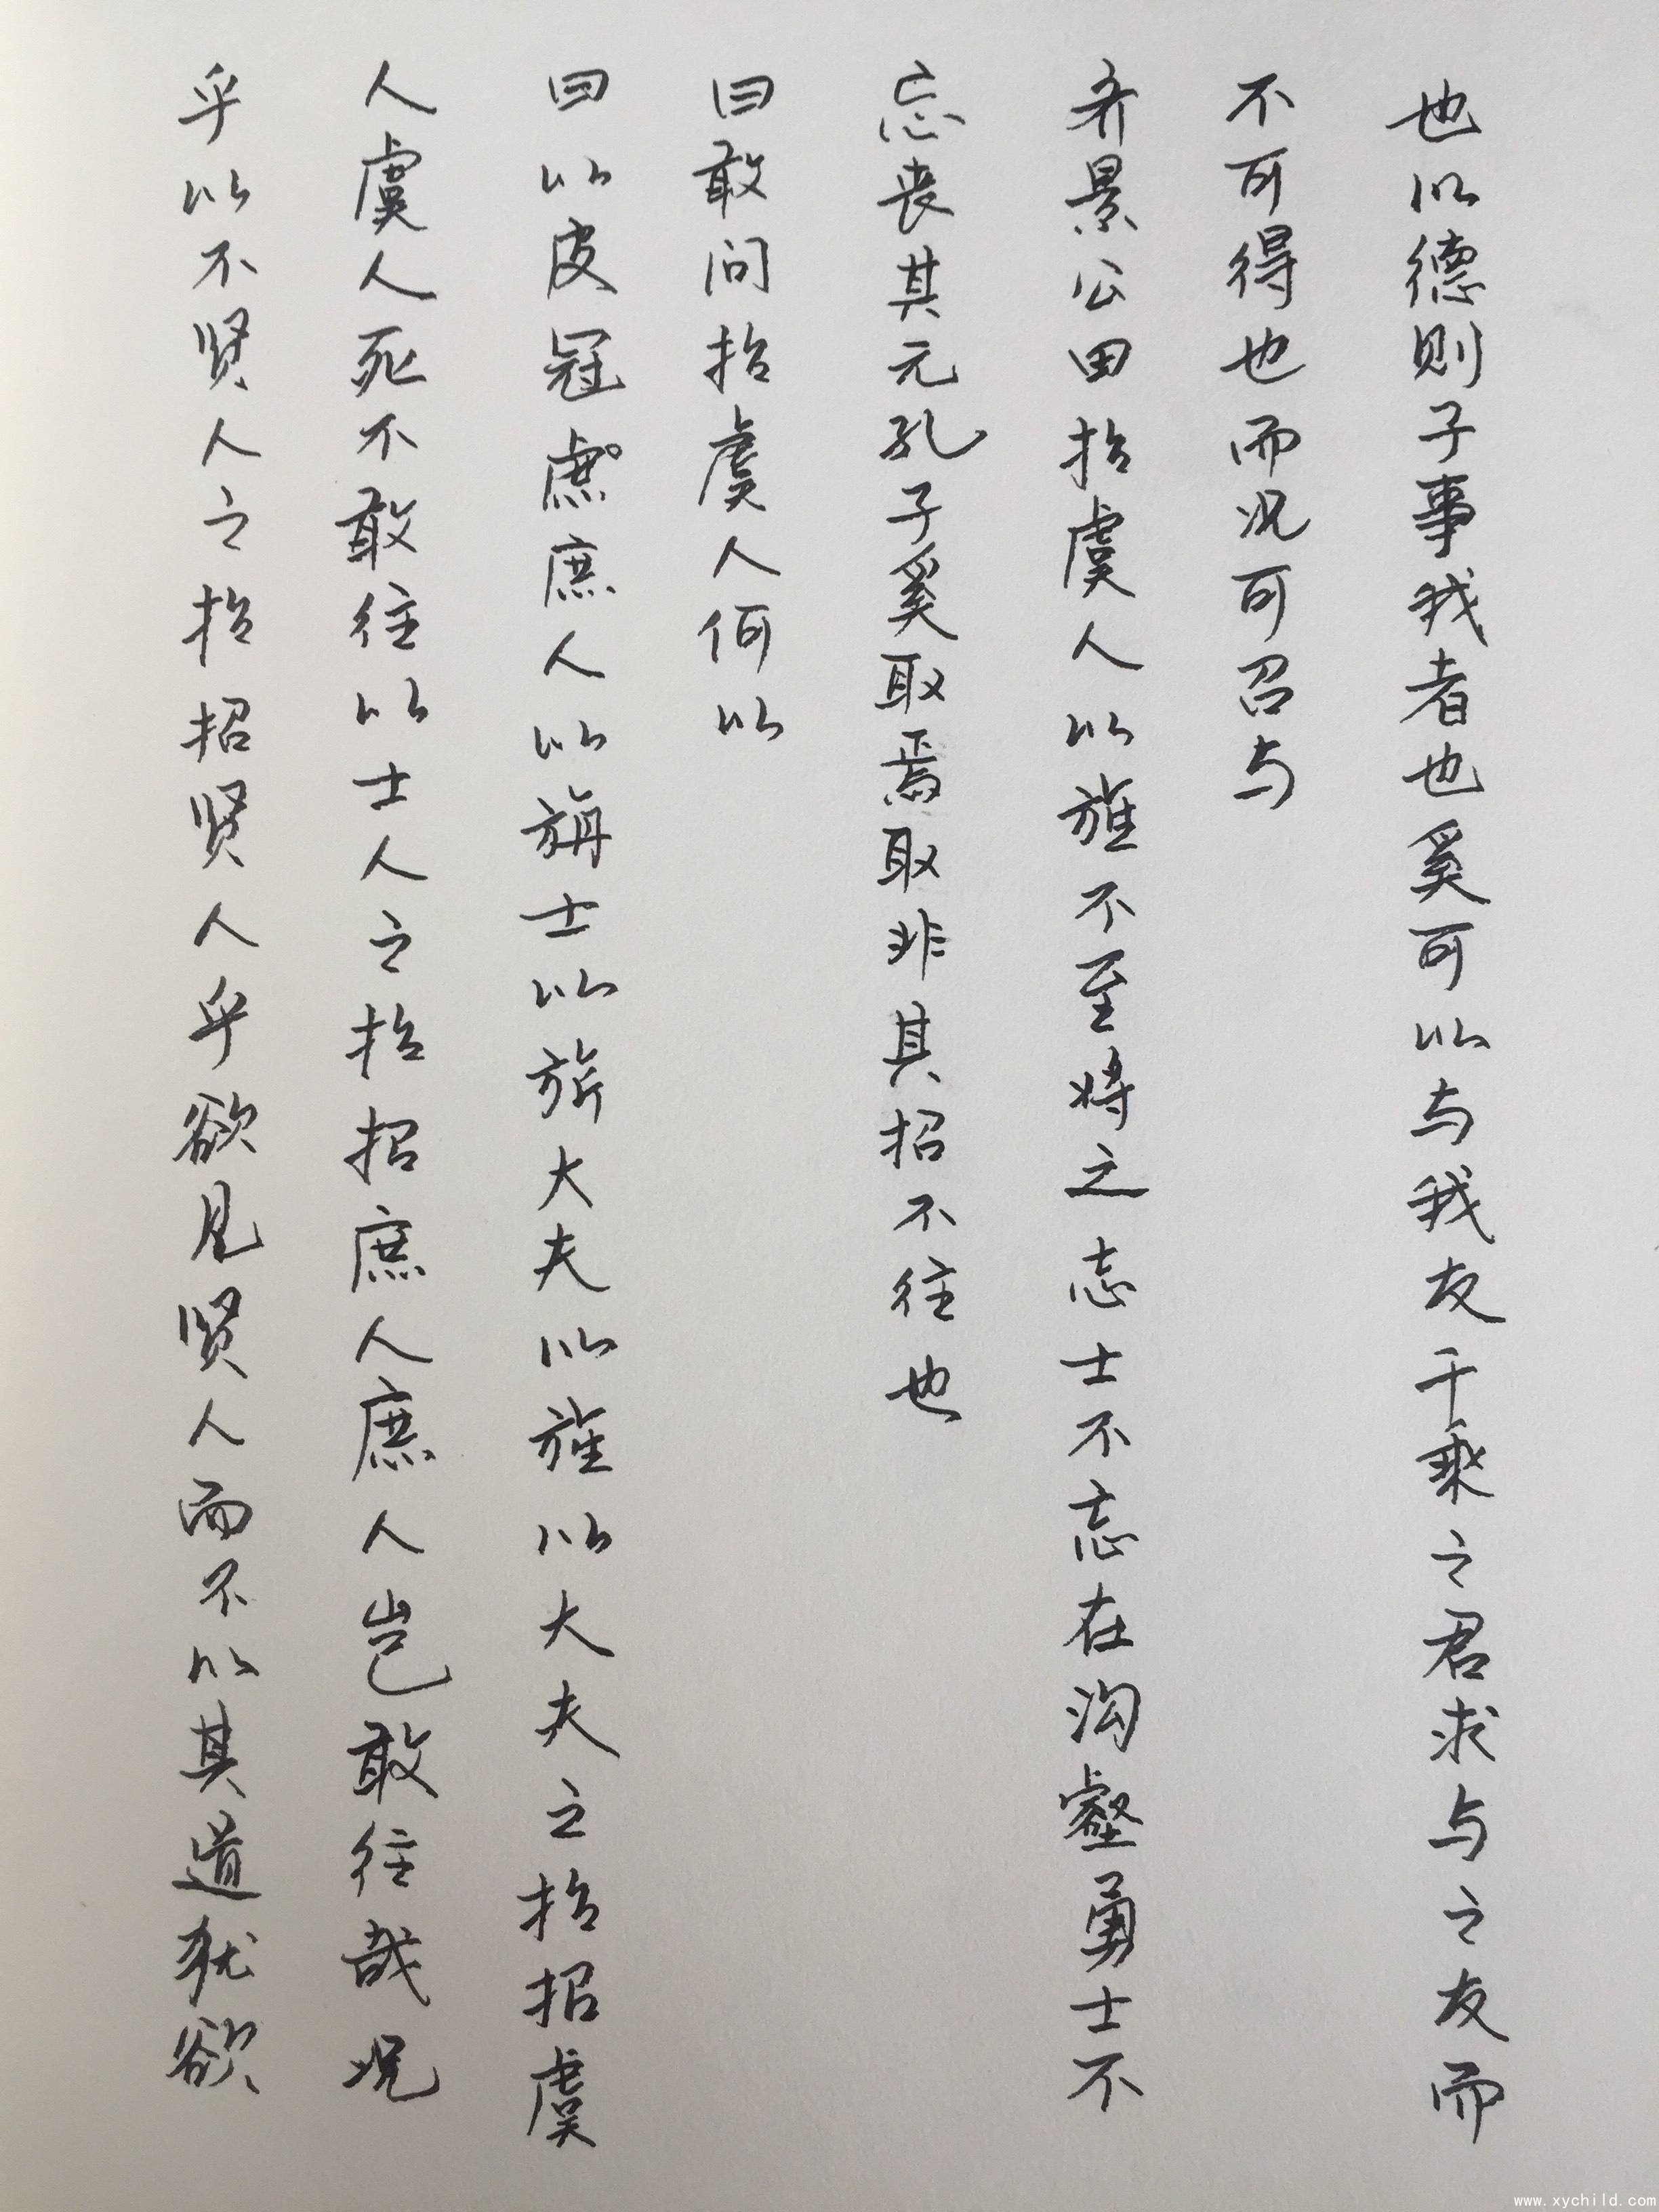 也以德则子事我者也奚可以与我友千乘之君求与之友而
不可得也而况可召与
齐景公田抬虞人以旌不至将之志士不忘在沟壑勇士不
忘丧其元孔子奚取焉取非其招不往也
曰敢问抬虞人何以
曰以皮冠庶人以旃士以旂大夫以旌以大夫之抬招虞
人虞人死不敢往以士人之抬招庶人庶人岂敢往哉况
乎以不贤人之抬招贤人乎欲见贤人而不以其道犹欲
www.xychild.com